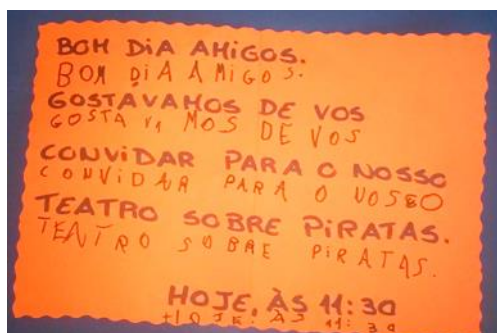 BOM DiA AMiGOS.
BOM DiA AMiGOS.
GOSTAVAMOS DE VOS
GOSTAVAMOS DE VOS
CONViDAR PARA O NOSSO
CONViDAR PARA O NOSSO
TEATRO SOBRE PiRATAS.
TEATRO SOBRE PiRATAS.
HOJE, ÀS 11:30
HOJE. ÀS 11:30